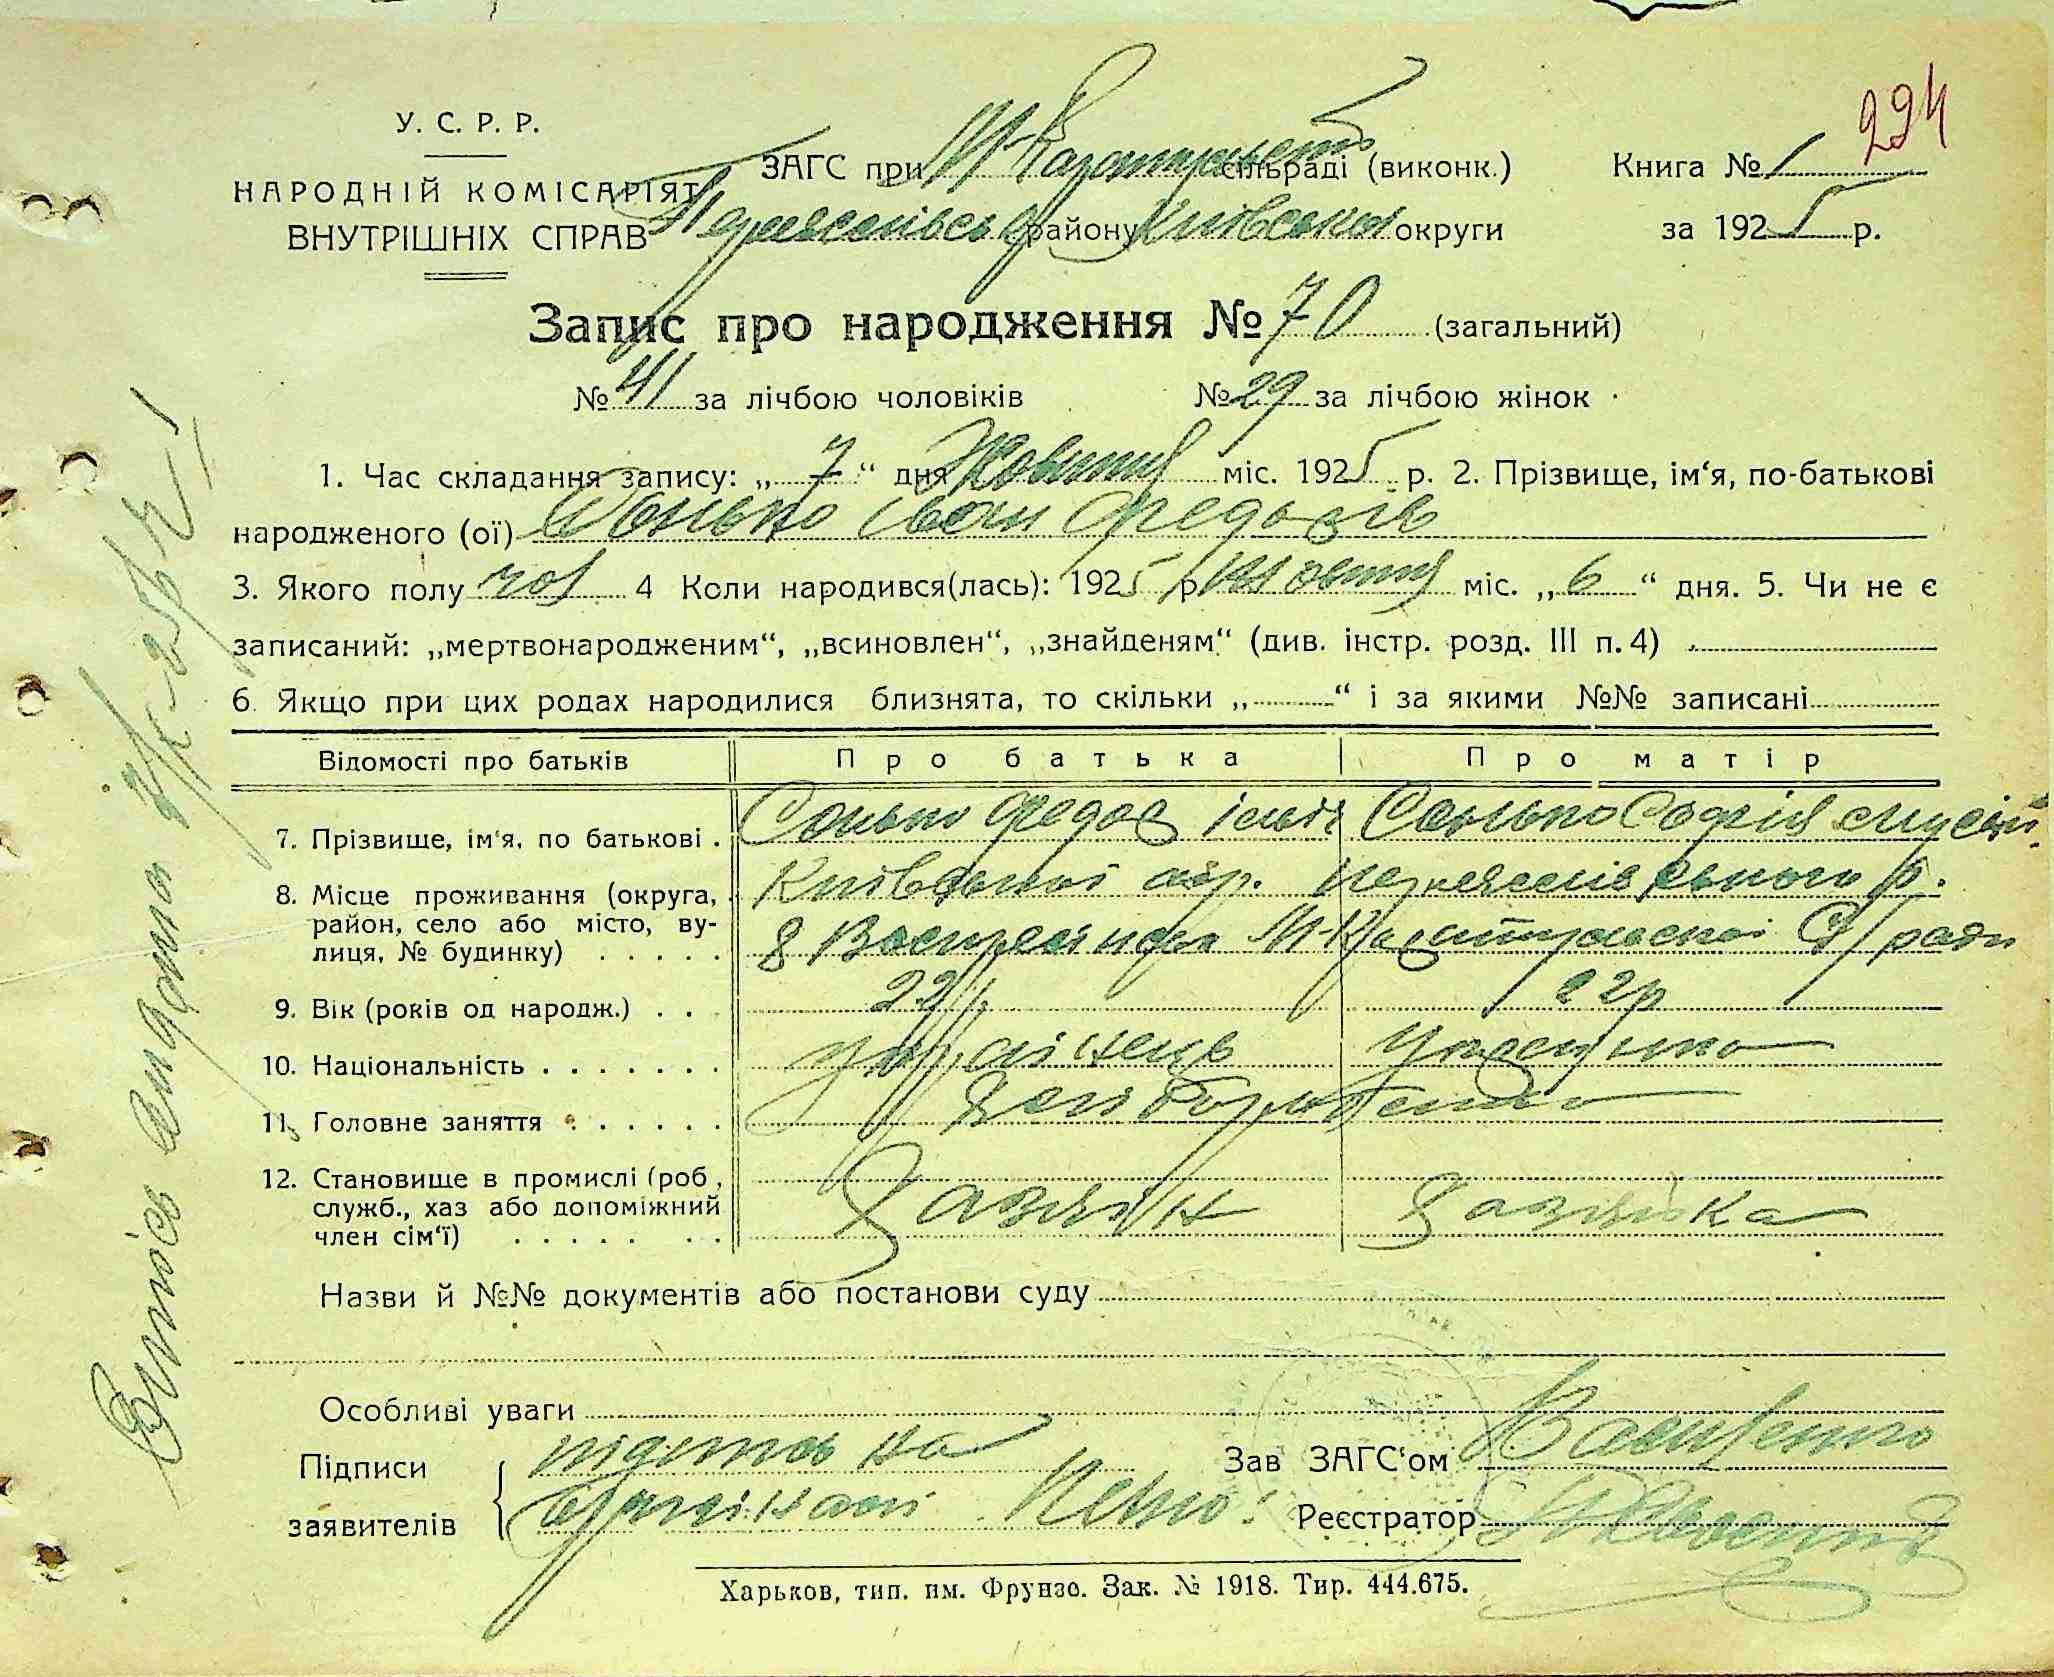 294
У. С. Р. Р.
НАРОДНІЙ КОМІСАРІЯТ
ВНУТРІШНІХ СПРАВ
ЗАГС при М-Каратульск сільраді (виконк.)
Переяславськ району Київської округи
Книга № 1
за 1925 р.
Запис про народження № 70 (загальний)
№ 41 за лічбою чоловіків № 29 за лічбою жінок
1. Час складання запису: „ 7 “ дня Жовтня міс. 1925 р. 2. Прізвище, ім‘я, по-батькові
народженого (ої) Сонько Іван Федосів
3. Якого полу чол 4 Коли народився(лась): 1925 р Жовтня міс. „ 6 “ дня. 5. Чи не є
записаний: „мертвонародженим“, „всиновлен“, „знайденям“ (див. інстр. розд. III п. 4)
6. Якщо при цих родах народилися близнята, то скільки „ “ і за якими №№ записані
Відомості про батьків Про батька Про матір
7. Прізвище, ім‘я, по батькові . Сонько Федос Сонько Софія
8. Місце проживання (округа, Київської окр. Переяславського р.
район, село або місто, ву- М-Каратульскої С/ради
лиця, № будинку) . . . . .
9. Вік (років од народж.) . . . 22 р 22 р
10. Національність . . . . . . . українець українка
11. Головне заняття . . . . . . Хліборобство
12. Становище в промислі (роб.,
служб., хаз або допоміжний Хазяїн Хазяйка
член сім‘ї) . . . . . . .
Назви й №№ документів або постанови суду
Особливі уваги
Підписи підпис на
заявителів оригіналі
Зав ЗАГС‘ом
Реєстратор
Харьков, тип. им. Фрунзе. Зак. № 1918. Тир. 444.675.
Випись видана